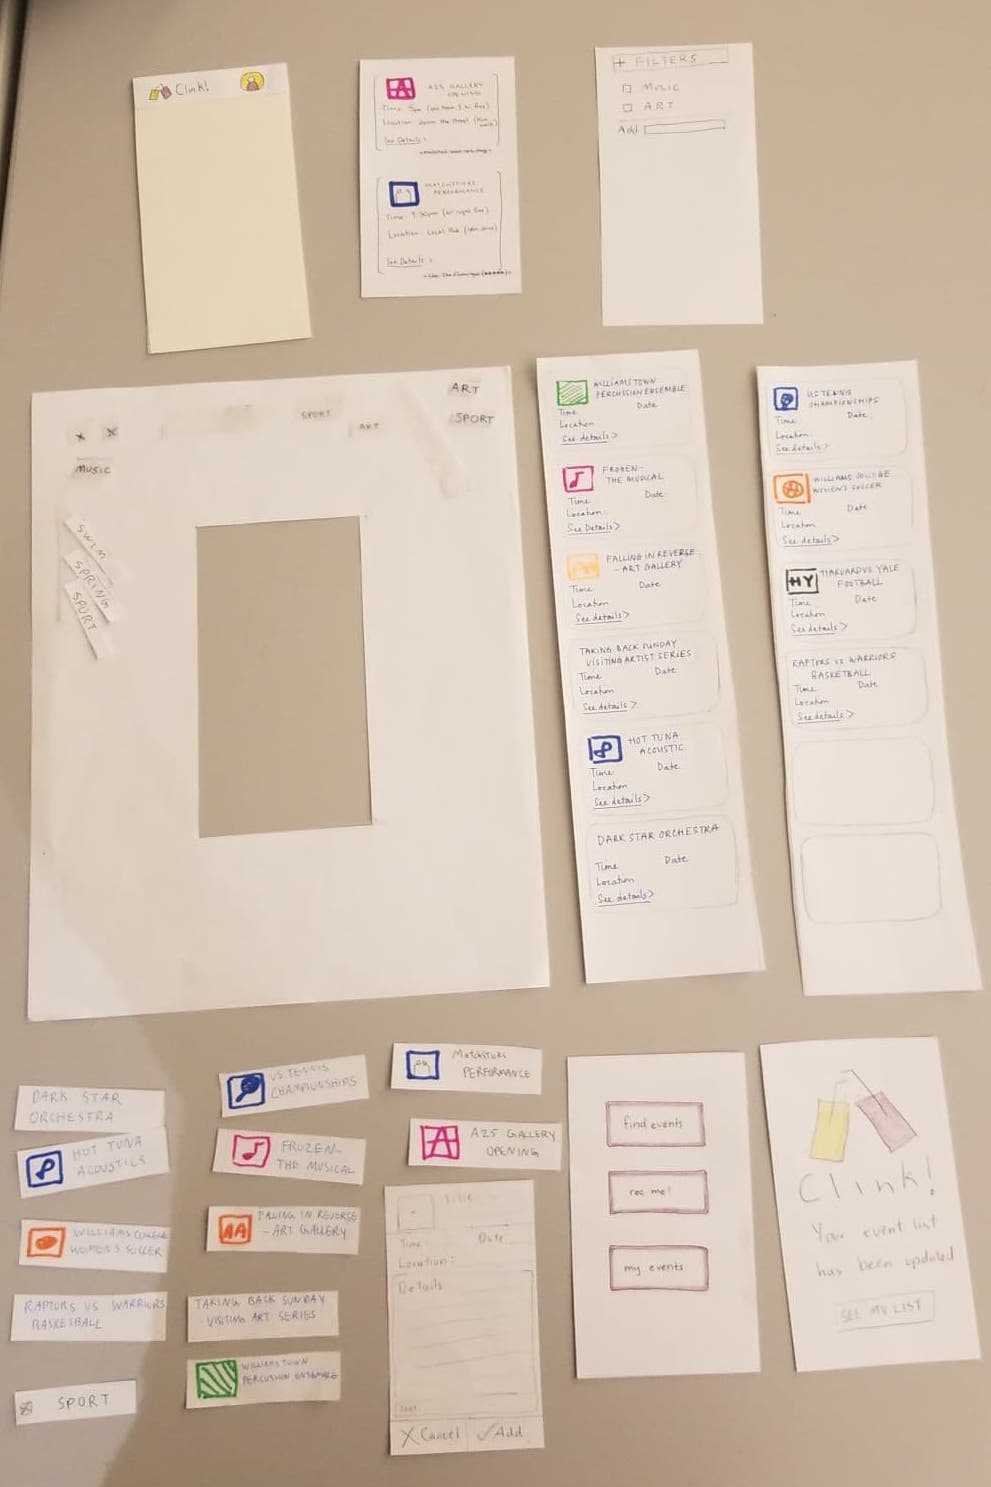 Clink!
A25 GALLERY
OPENING
See Details >
MATCHSTICKS
PERFORMANCE
See Details >
+ FILTERS
MUSIC
ART
Add
ART
SPORT
SPORT
ART
x x
MUSIC
SWIM
SPRING
SPORT
WILLIAMSTOWN
PERCUSSION ENSEMBLE
Time Date
Location
See details >
FROZEN-
THE MUSICAL
Time Date
Location
See Details >
FALLING IN REVERSE
- ART GALLERY
Time Date
Location
See details >
TAKING BACK SUNDAY
VISITING ARTIST SERIES
Time Date
Location
See details >
HOT TUNA
ACOUSTIC
Time Date
Location
See details >
DARK STAR ORCHESTRA
Time Date
Location
See details >
US TENNIS
CHAMPIONSHIPS
Time Date
Location
See details >
WILLIAMS COLLEGE
WOMEN'S SOCCER
Time Date
Location
See details >
HY
HARVARD VS YALE
FOOTBALL
Time Date
Location
See details >
RAPTORS VS WARRIORS
BASKETBALL
Time Date
Location
See details >
DARK STAR
ORCHESTRA
HOT TUNA
ACOUSTICS
WILLIAMS COLLEGE
WOMEN'S SOCCER
RAPTORS VS WARRIORS
BASKETBALL
SPORT
US TENNIS
CHAMPIONSHIPS
FROZEN-
THE MUSICAL
AA
FALLING IN REVERSE
- ART GALLERY
TAKING BACK SUNDAY
- VISITING ART SERIES
WILLIAMSTOWN
PERCUSSION ENSEMBLE
Matchsticks
PERFORMANCE
A
A25 GALLERY
OPENING
Title
Time Date
Location:
Details
X Cancel ✓Add
find events
rec me!
my events
Clink!
Your event list
has been updated
SEE MY LIST